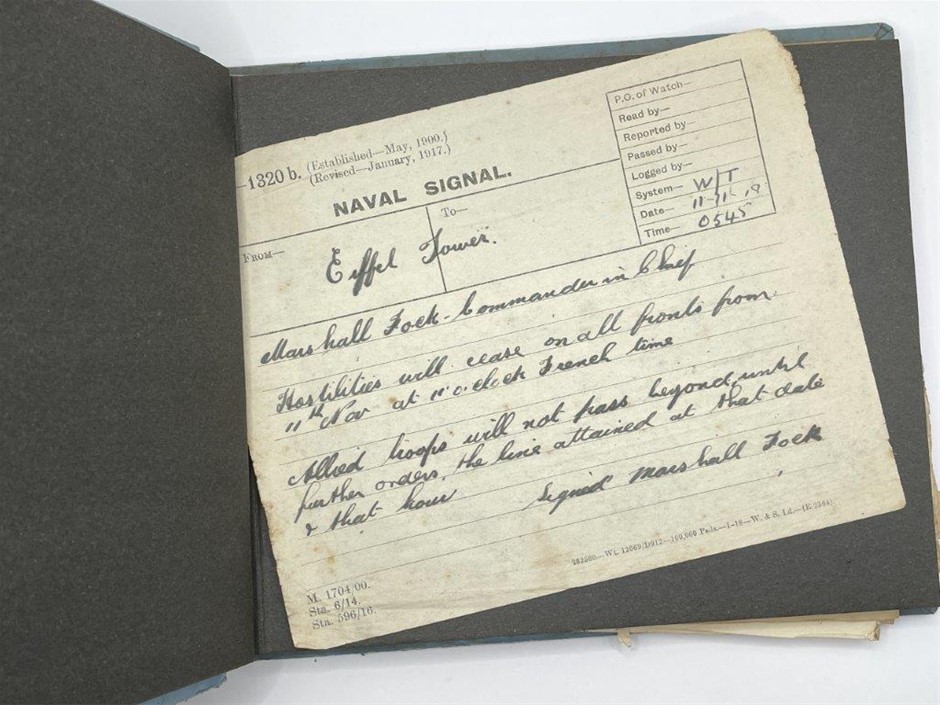 —1320 b. (Established—May, 1900.)
(Revised—January, 1917.)
NAVAL SIGNAL.
P.O. of Watch—
Read by—
Reported by—
Passed by—
Logged by—
System— W/T
Date— 11-11-18
Time— 0545
FROM—
To—
Eiffel Tower.
Marshall Foch - Commander in Chief
Hostilities will cease on all fronts from
11th Nov at 11 o'clock French time
Allied troops will not pass beyond until
further orders, the line attained at that date
& that hour
Signed Marshall Foch
M. 1704/00.
Sta. 6/14.
Sta. 596/16.
Wt. 12069/D912—100,000 Pads.—1-18—W. & S. Ld.—(E 2364)